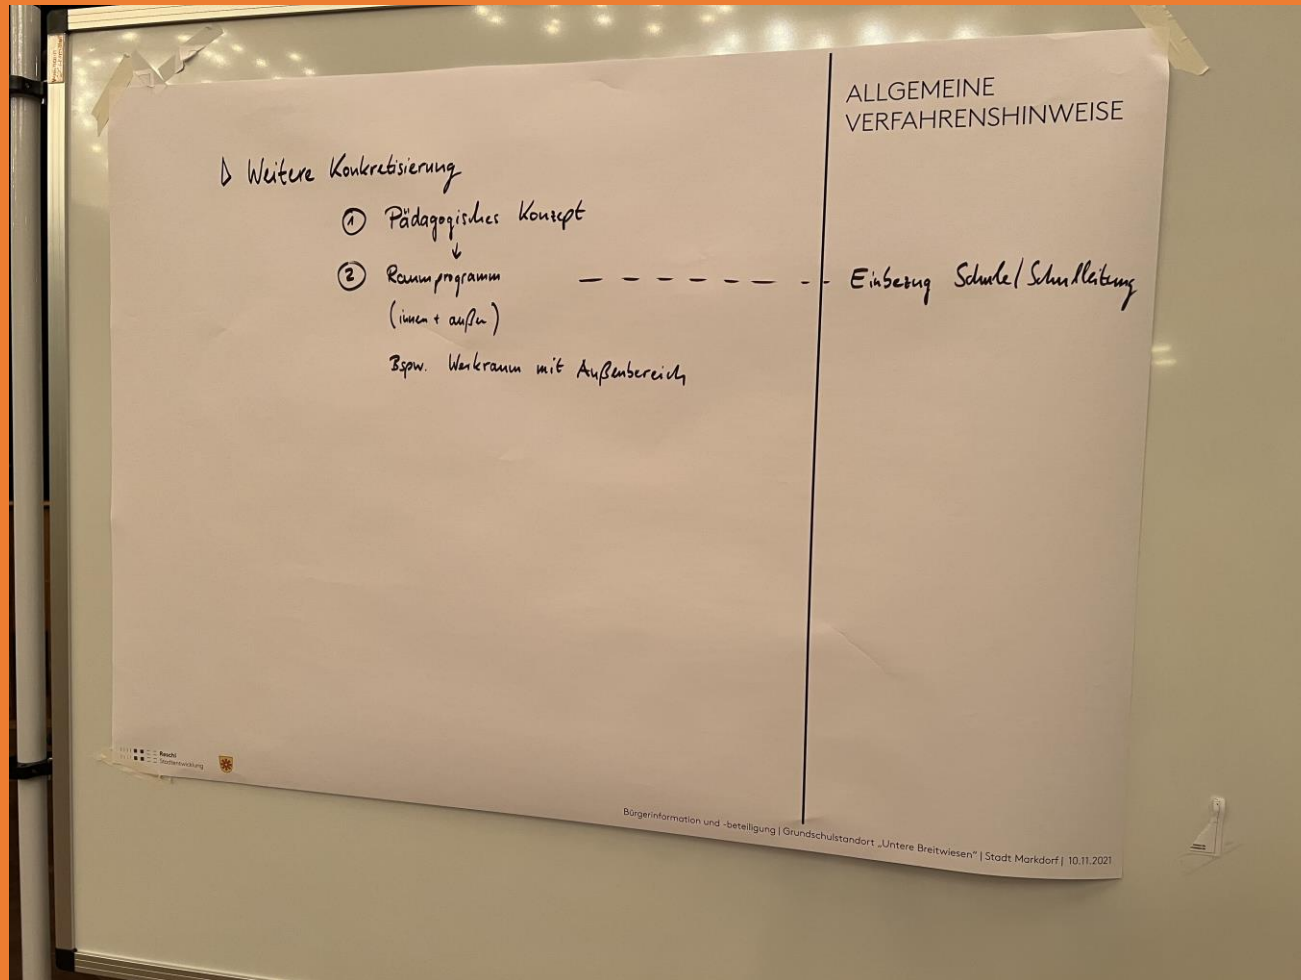 ALLGEMEINE
VERFAHRENSHINWEISE
▷ Weitere Konkretisierung
① Pädagogisches Konzept
↓
② Raumprogramm – – – – – – – Einbezug Schule/Schulleitung
(innen + außen)
Bspw. Werkraum mit Außenbereich
Reschl
Stadtentwicklung
Bürgerinformation und -beteiligung | Grundschulstandort „Untere Breitwiesen" | Stadt Markdorf | 10.11.2021